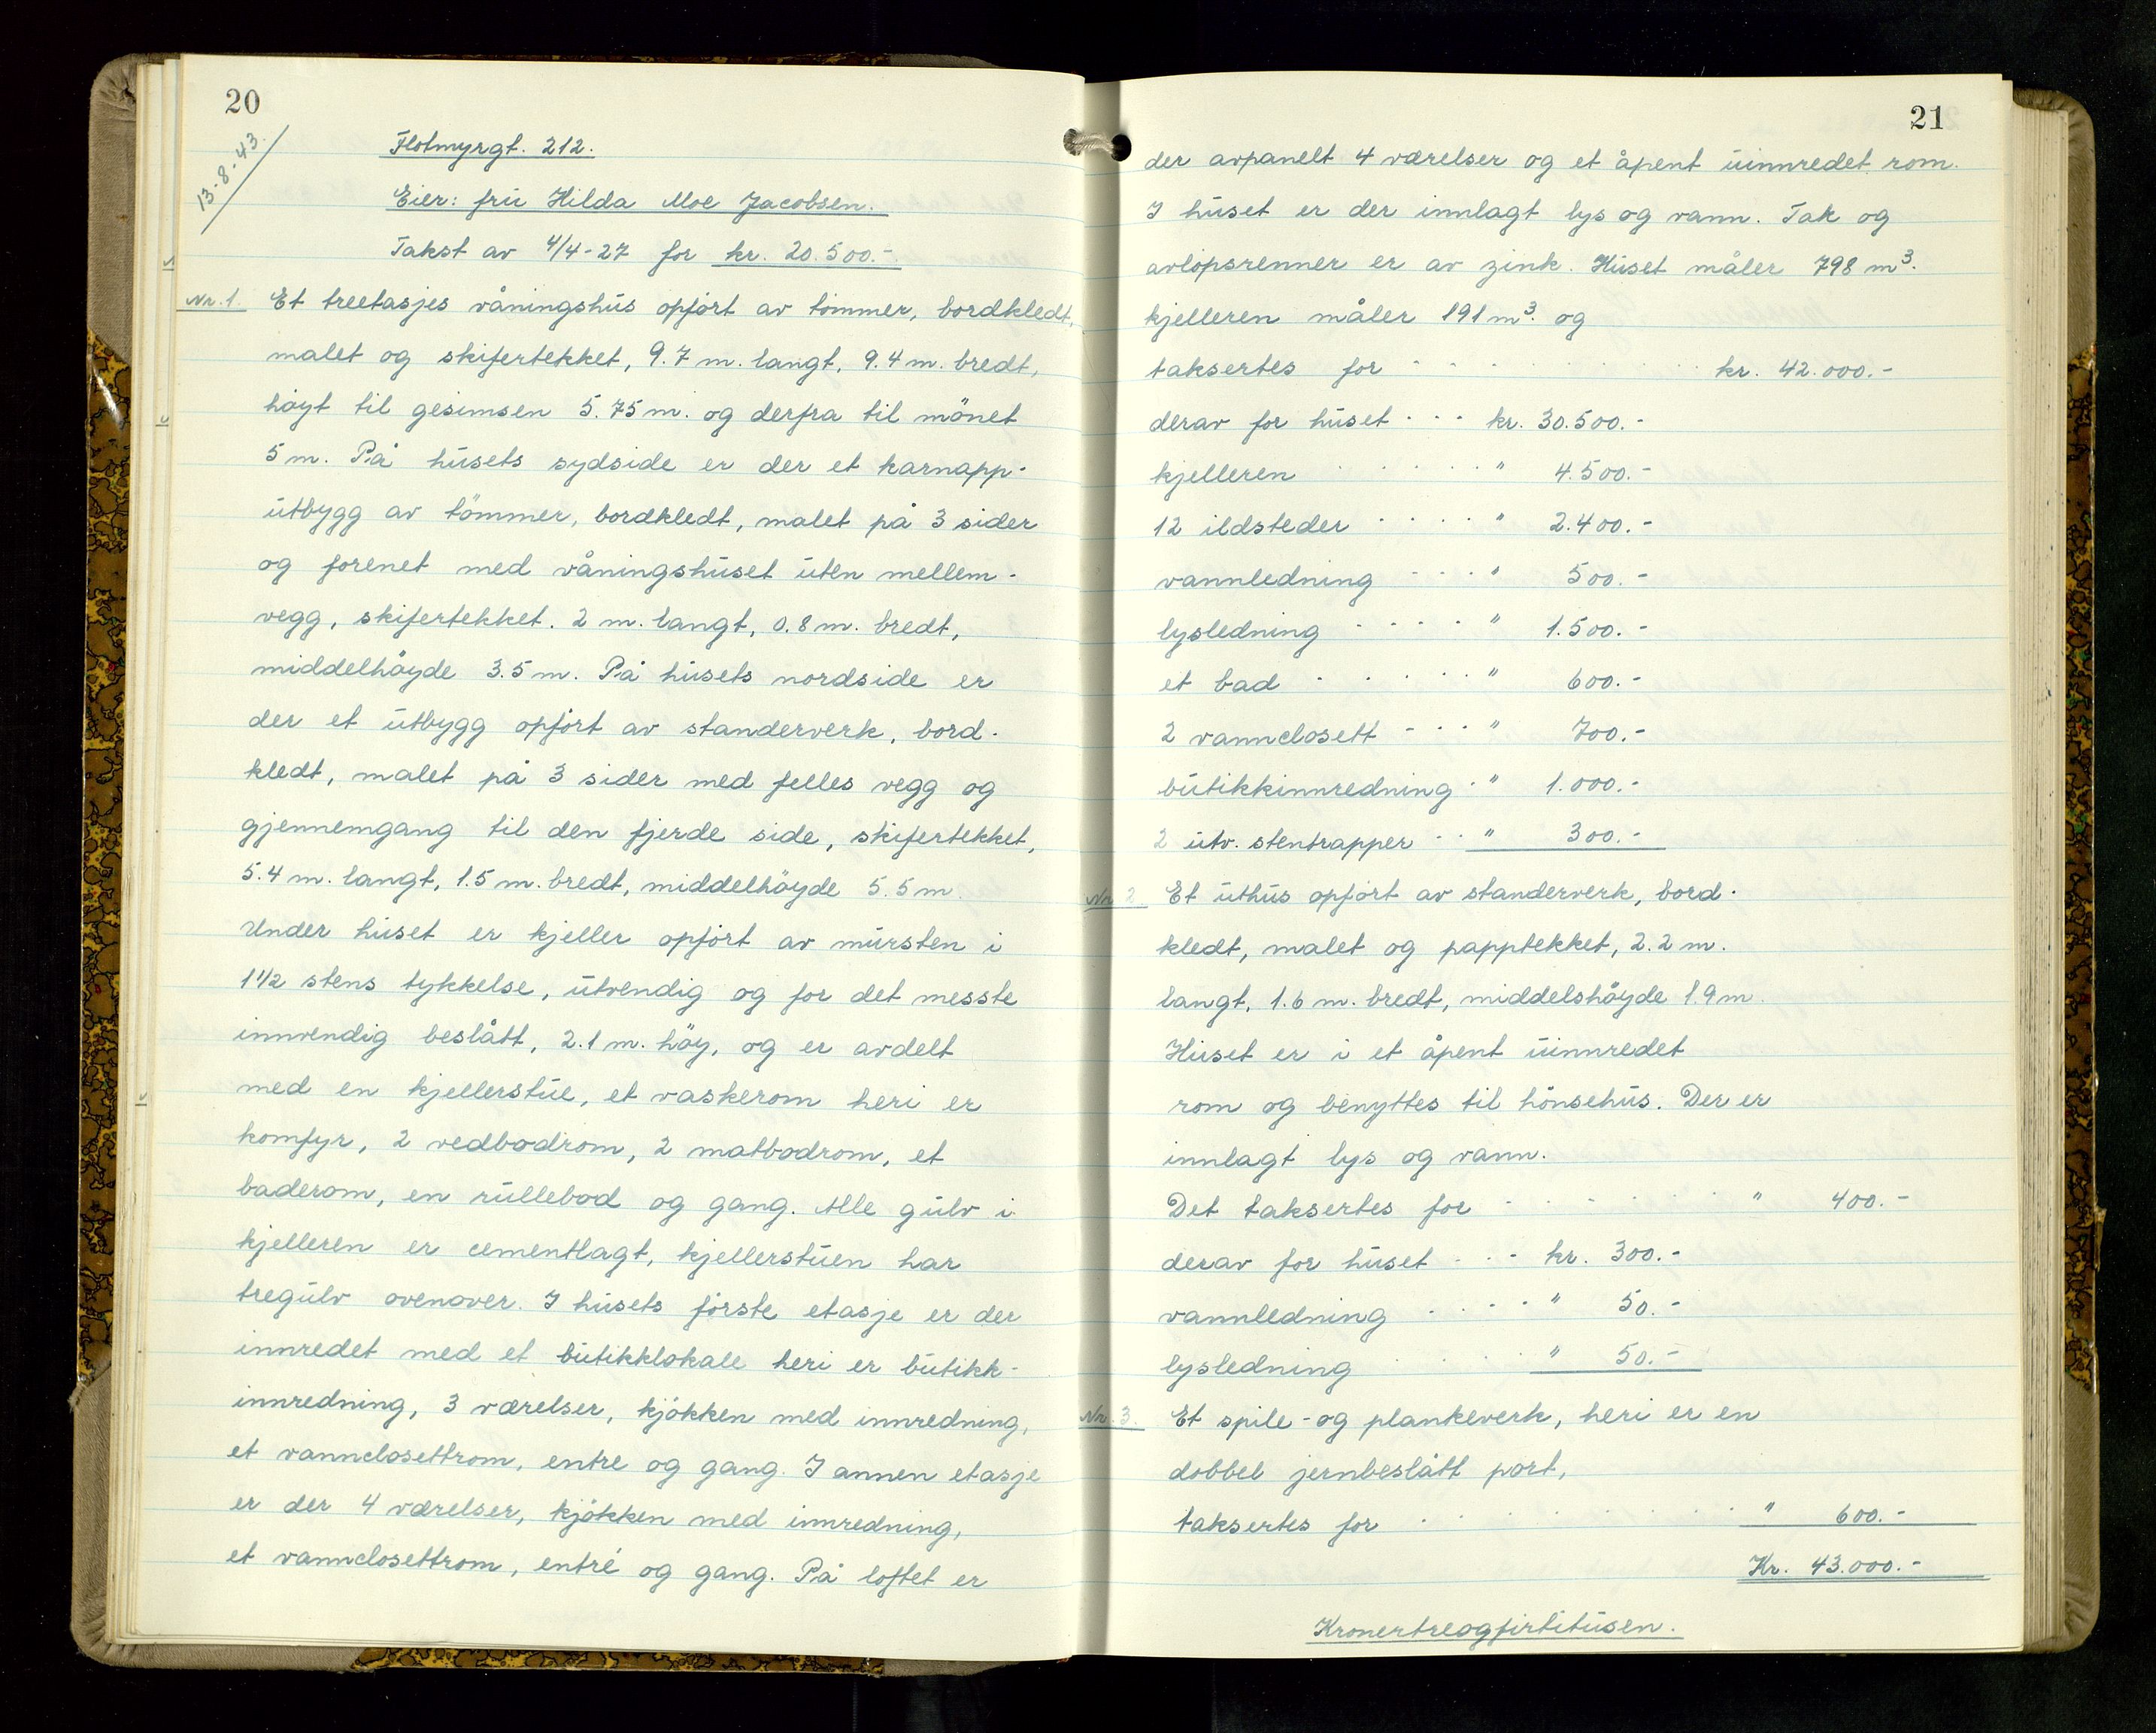 20
13-8-43.
Flotmyrgt. 212.
Eier: fru Hilda Moe Jacobsen.
Takst av 4/4-27 for kr. 20.500.-
Nr. 1. Et treetasjes våningshus opført av tömmer, bordkledt,
malet og skifertekket, 9.7 m. langt, 9.4 m. bredt,
höyt til gesimsen 5.75 m. og derfra til mönet
5 m. På husets sydside er der et karnapp-
utbygg av tömmer, bordkledt, malet på 3 sider
og forenet med våningshuset uten mellem-
vegg, skifertekket. 2 m. langt, 0.8 m. bredt,
middelhöyde 3.5 m. På husets nordside er
der et utbygg opfört av standerverk, bord-
kledt, malet på 3 sider med felles vegg og
gjennemgang til den fjerde side, skifertekket,
5.4 m. langt, 1.5 m. bredt, middelhöyde 5.5 m.
Under huset er kjeller opfört av mursten i
1 1/2 stens tykkelse, utvendig og for det messte
innvendig beslått, 2.1 m. höy, og er avdelt
med en kjellerstue, et vaskerom heri er
komfyr, 2 vedbodrom, 2 matbodrom, et
baderom, en rullebod og gang. Alle gulv i
kjelleren er cementlagt, kjellerstuen har
tregulv ovenover. I husets förste etasje er der
innredet med et butikklokale heri er butikk-
innredning, 3 værelser, kjökken med innredning,
et vannclosettrom, entre og gang. I annen etasje
er der 4 værelser, kjökken med innredning,
et vannclosettrom, entré og gang. På loftet er
21
der avpanelt 4 værelser og et åpent uinnredet rom.
I huset er der innlagt lys og vann. Tak og
avlöpsrenner er av zink. Huset måler 798 m³.
kjelleren måler 191 m³. og
taksertes for - - - - - - kr. 42.000.-
derav for huset - - - kr. 30.500.-
kjelleren - - - - - " 4.500.-
12 ildsteder - - - - " 2.400.-
vannledning - - - " 500.-
lysledning - - - - " 1.500.-
et bad - - - - - " 600.-
2 vannclosett - - - " 700.-
butikkinnredning - " 1.000.-
2 utv. stentrapper - - " 300.-
Nr. 2. Et uthus opfört av standerverk, bord-
kledt, malet og papptekket, 2.2 m.
langt, 1.6 m. bredt, middelshöyde 1.9 m.
Huset er i et åpent uinnredet
rom og benyttes til hönsehus. Der er
innlagt lys og vann.
Det taksertes for - - - - - - " 400.-
derav for huset - - - kr. 300.-
vannledning - - - - " 50.-
lysledning - - - - - " 50.-
Nr. 3. Et spile- og plankeverk, heri er en
dobbel jernbeslått port,
taksertes for - - - - - - - " 600.-
Kr. 43.000.-
Kronertreogfirtitusen.